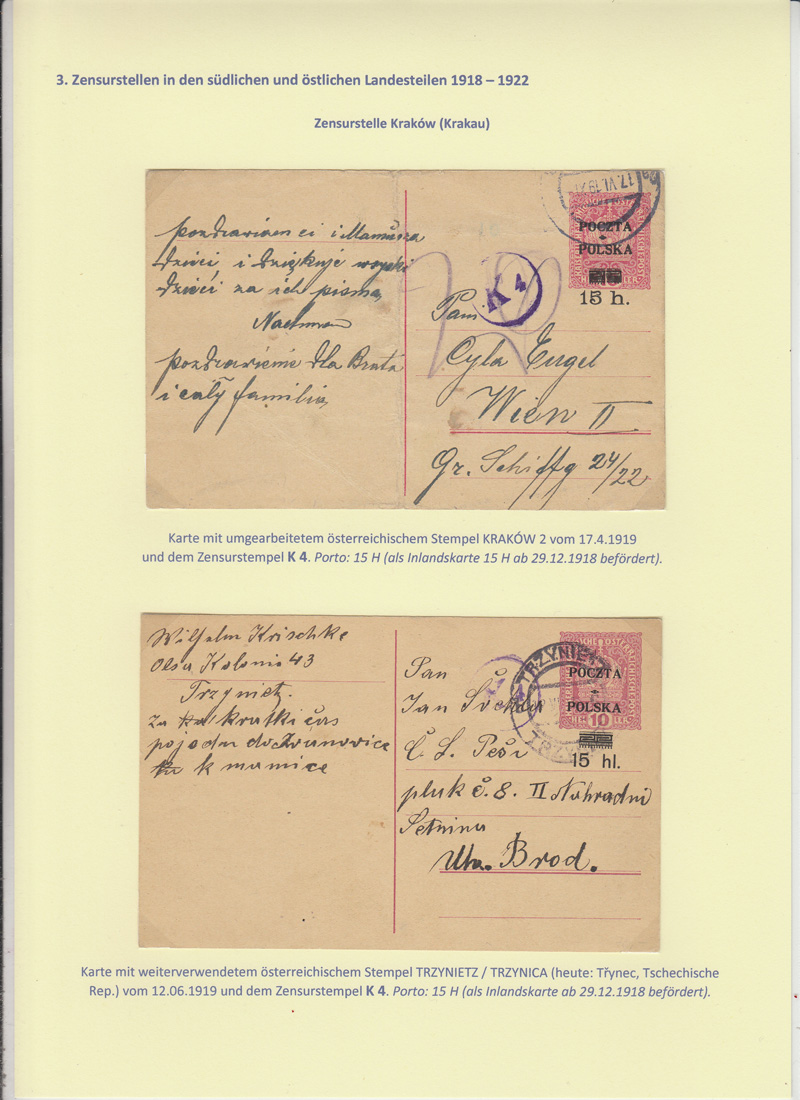 3. Zensurstellen in den südlichen und östlichen Landesteilen 1918 – 1922
Zensurstelle Kraków (Krakau)
17.VI.19
POCZTA
POLSKA
15 h.
K 4
pozdrawiam ci i Mamusza
dzieci i dziękuje
dzieci za ich pisma
pozdrawienie dla Brata
i cały familia
Pani
Cyla Engel
Wien II
Gr. Schiffg 24/22
Karte mit umgearbeitetem österreichischem Stempel KRAKÓW 2 vom 17.4.1919
und dem Zensurstempel K 4. Porto: 15 H (als Inlandskarte 15 H ab 29.12.1918 befördert).
Wilhelm Krischke
Olsa Kolonie 43
Trzynietz.
Za kratki čas
pojedu do
k mamice
TRZYNIETZ
POCZTA
POLSKA
10
15 hl.
Pan
Jan
Č. L. Peši
pluk č. 8. II Nahradni
Setnina
Uh. Brod.
Karte mit weiterverwendetem österreichischem Stempel TRZYNIETZ / TRZYNICA (heute: Třynec, Tschechische
Rep.) vom 12.06.1919 und dem Zensurstempel K 4. Porto: 15 H (als Inlandskarte ab 29.12.1918 befördert).